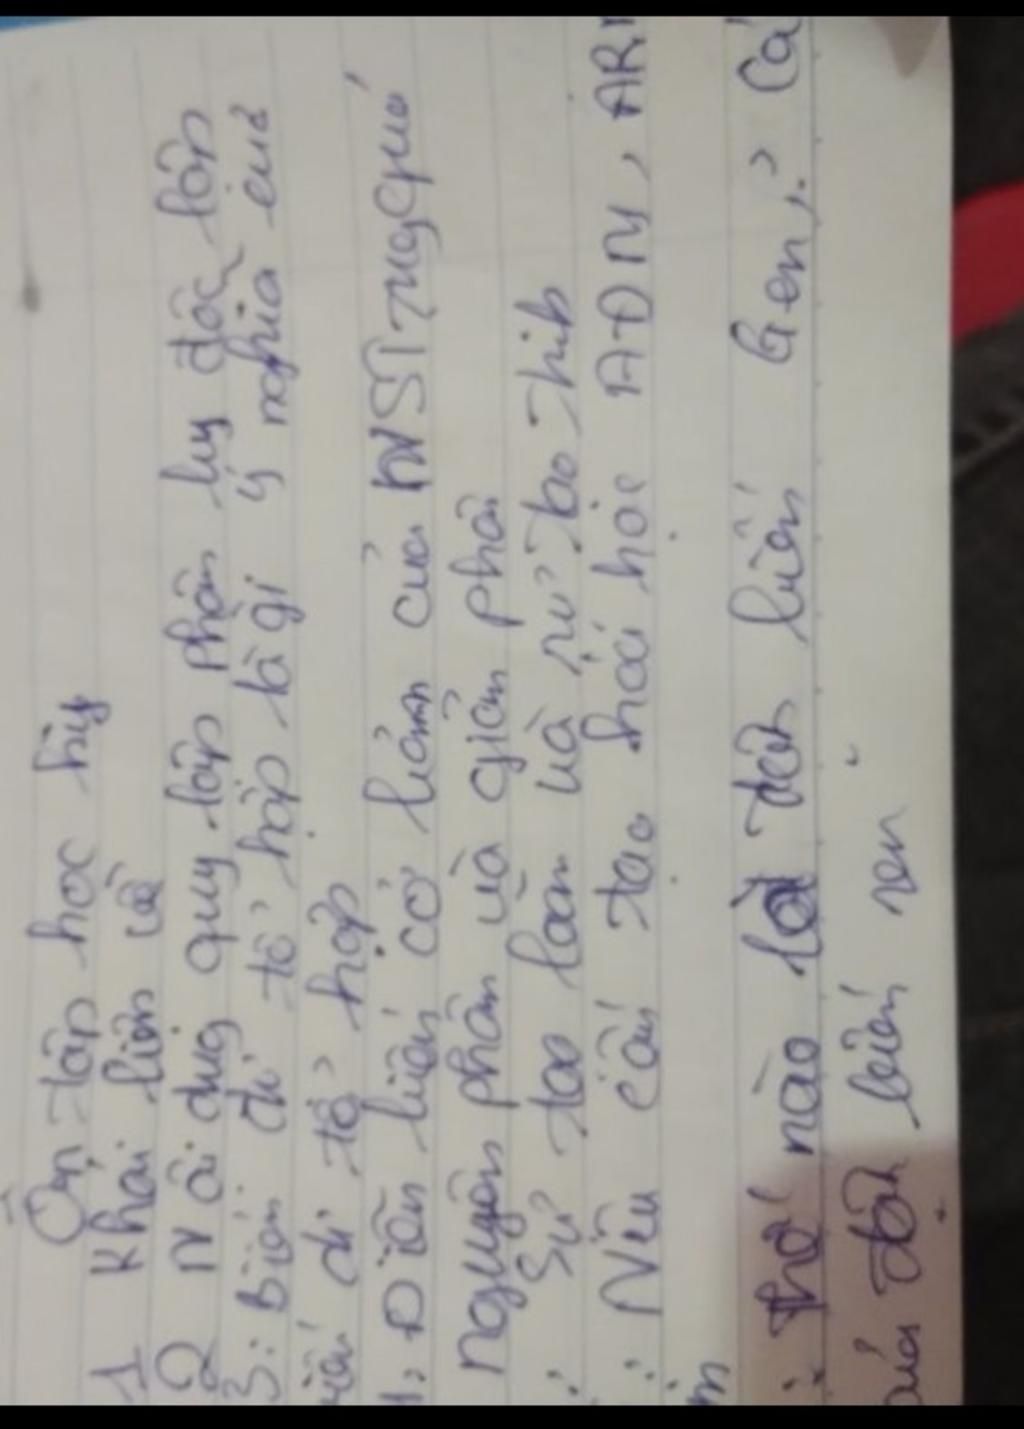 Ôn tập học kỳ
1 Khái niệm về
2 Nội dung quy luật phân ly độc lập
3: Biến dị tổ hợp là gì ý nghĩa của
biến dị tổ hợp
1: Diễn biến cơ bản của NST trog quá
nguyên phân và giảm phân
: Sự tạo loàn và sự tạo
: Nêu cấu tạo hoá học ADN, AR
: Thế nào là đột biến Gen,? Cá
của đột biến